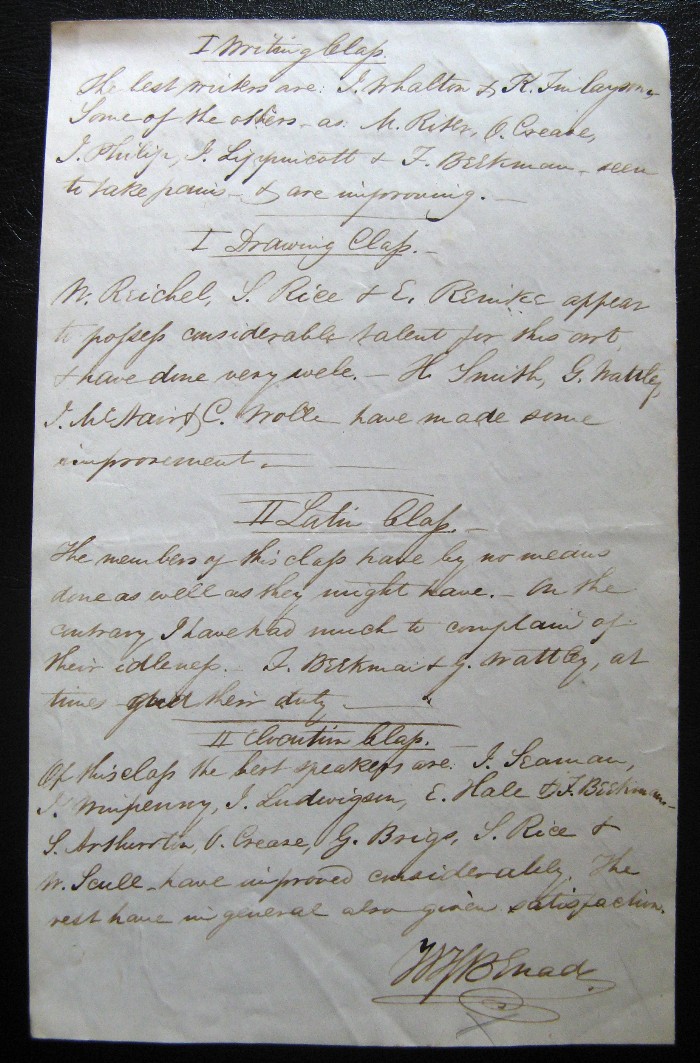 I Writing Class
The best writers are: J. Whalton & K. Finlayson.
Some of the others - as M. Riker, O. Crease,
J. Philip, J. Lippincott & F. Beekman - seem
to take pains - & are improving. -
I Drawing Class. -
W. Reichel, S. Rice & E. Reinke appear
to possess considerable talent for this art
& have done very well. - H. Smith, G. Wattley,
J. McNair & C. Wolle have made some
improvement. -
II Latin Class. -
The members of this class have by no means
done as well as they might have. - On the
contrary I have had much to complain of
their idleness. F. Beekman & G. Wattley, at
times their duty. -
II Elocution Class. -
Of this class the best speakers are: J. Seaman,
J. Winpenny, J. Ludwigsen, E. Hale & F. Beekman -
S. O. Crease, G. Brigs, S. Rice &
W. Scull - have improved considerably. The
rest have in general also given satisfaction.